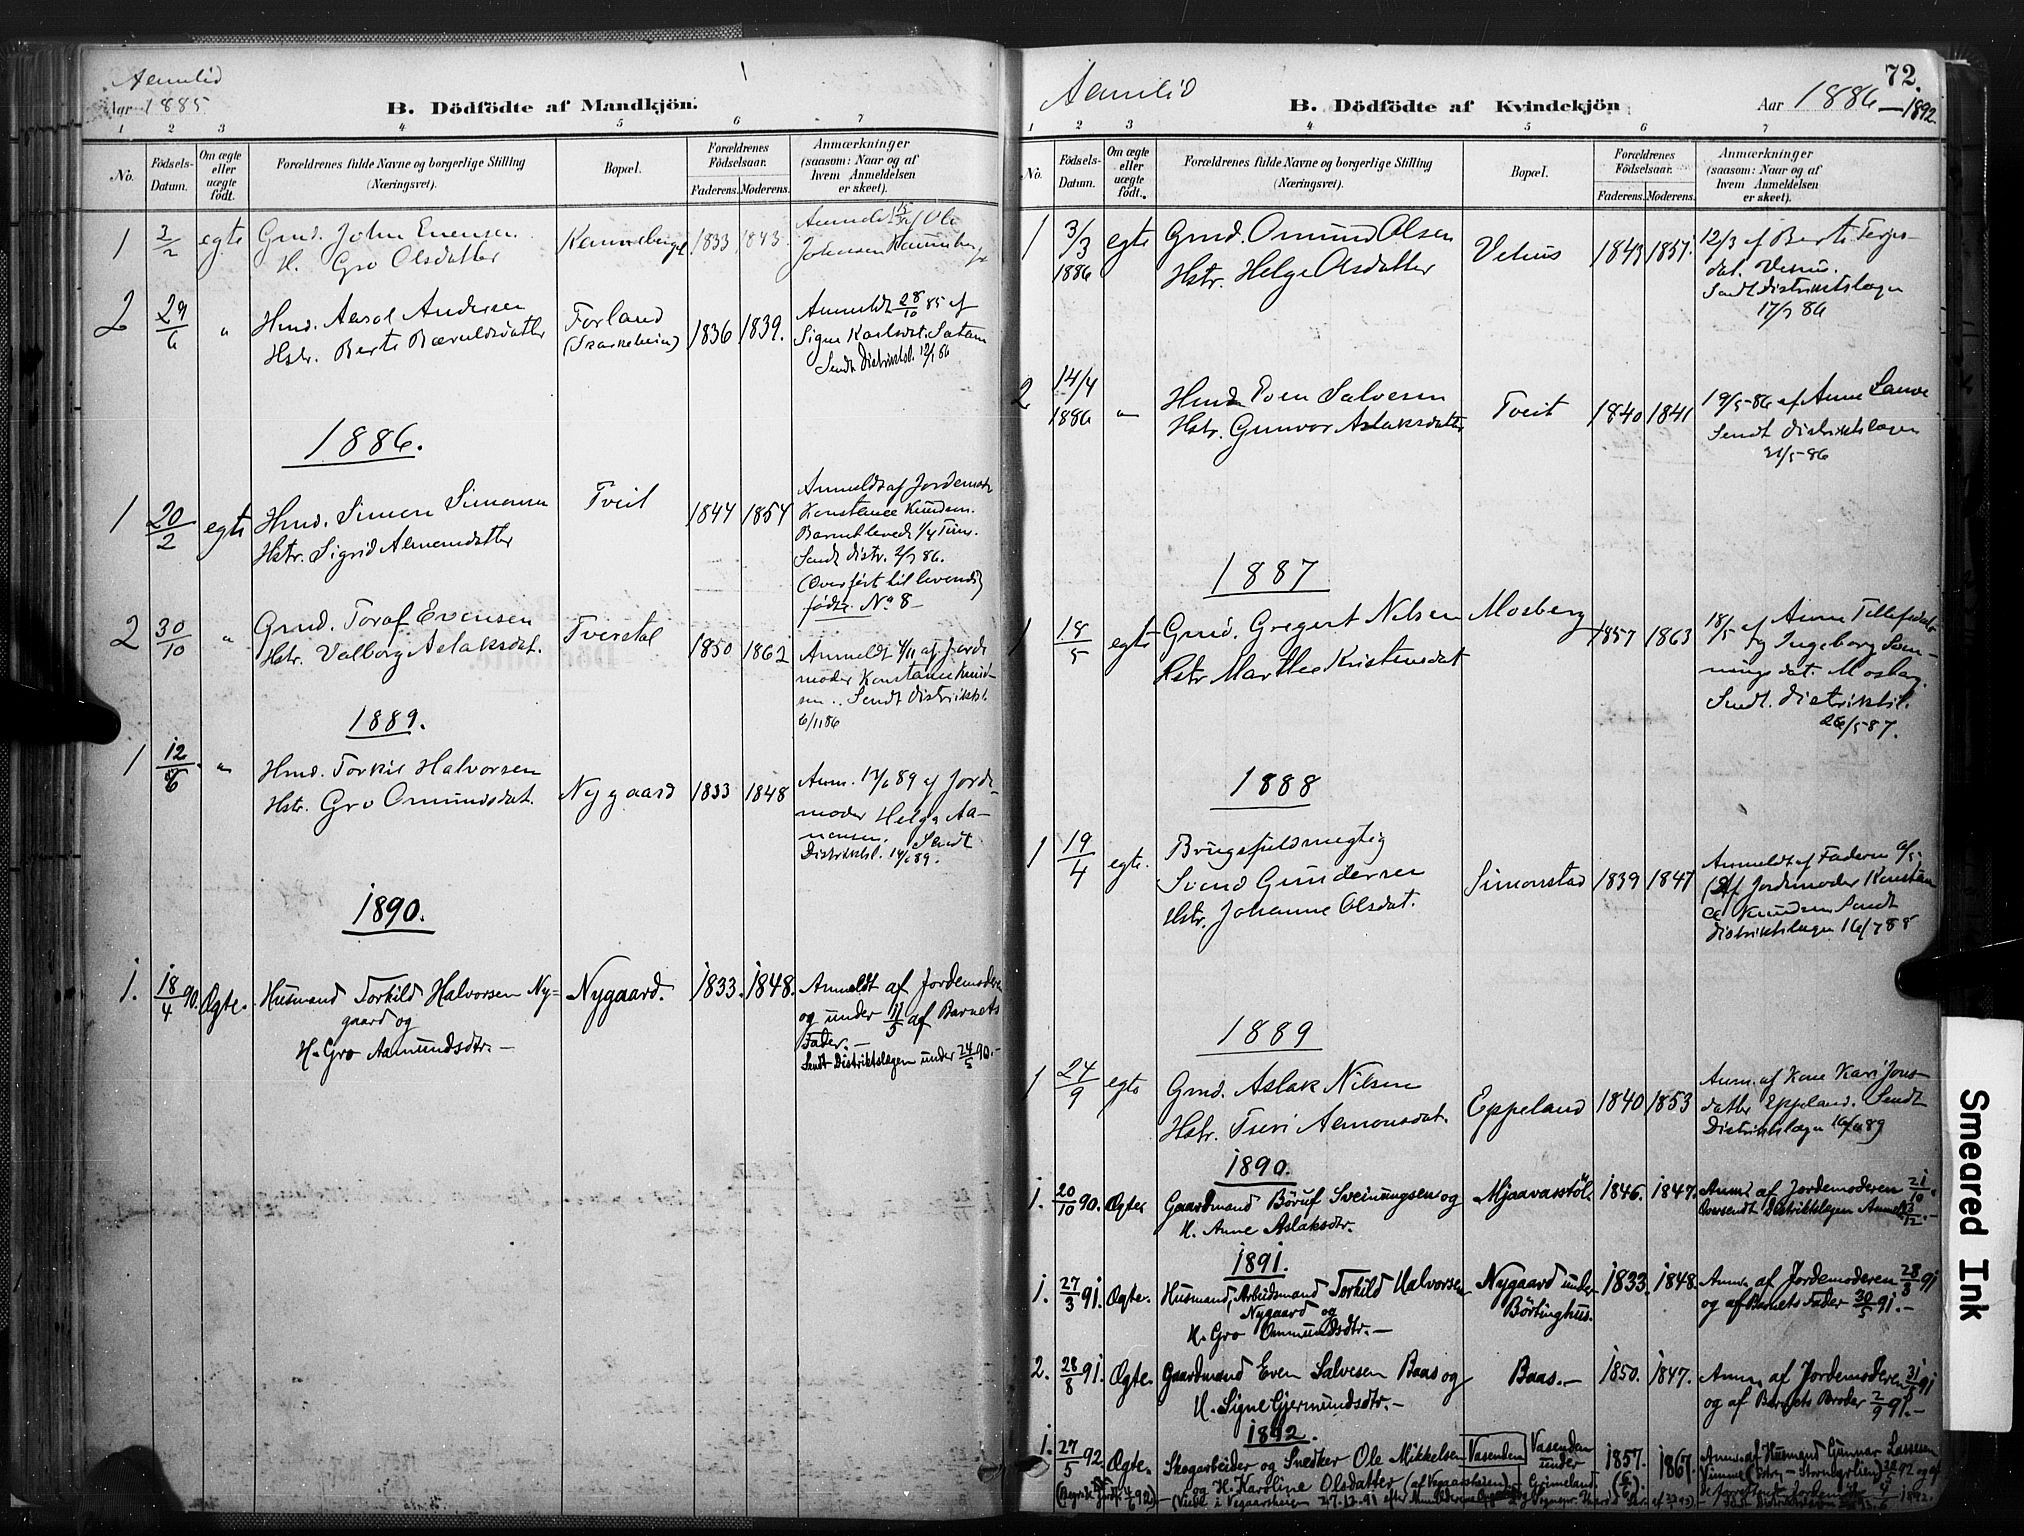 Aamlid
Aar 1885
B. Dödfödte af Mandkjön.
1 2 3 4 5 6 7
No.
Födsels-
Datum.
Om ægte
eller
uægte
født.
Forældrenes fulde Navne og borgerlige Stilling
(Næringsvei).
Bopæl.
Forældrenes
Födselsaar.
Faderens. Moderens.
Anmærkninger
(saasom: Naar og af
hvem Anmeldelsen
er skeet).
1 3/2 egte Grmd. John Evensen
H. Gro Olsdatter
1833 1843
Anmeldt af Ole
Johnsen
2 29/6 " Hmd. Aasol Andersen
Hstr. Berte Bæruldsdatter
Forland
1836 1839.
Anmeldt 28/10 85 af
Signe Karlsdat.
Sendt Distriktsl. 12/1 86
1886.
1 20/2 egte Hmd. Simen Simonsen
Hstr. Sigrid Aamondatter
Tveit
1844 1854
Anmeldt af Jordemoder
Konstance Knudsen.
Barnet levede 1/4 Time.
Sendt distr. 2/7 86.
(Overført til levende
fødte. No 8
2 30/10 " Grmd. Toraf Evensen
Hstr. Valborg Aslaksdat.
Tverstøl
1850 1862
Anmeldt 4/11 af Jorde
moder Konstance Knud-
sen. Sendt distriktsl.
6/11 86
1889.
1 12/6 " Hmd. Torkil Halvorsen
Hstr. Gro Omundsdat.
Nygaard
1833 1848
Anm. 13/6 89 af Jorde-
moder Helga Aa-
nensen. Sendt
Distriktsl. 14/6 89.
1890.
1. 18/4 90. Ægte. Husmand Torkild Halvorsen Ny-
gaard og
H. Gro Aamundsdtr. -
Nygaard.
1833. 1848.
Anmeldt af Jordemoderen
og under 11/5 af Barnets
Fader. -
Sendt Distriktslægen under 24/5 90. -
Aamlid
72.
B. Dödfödte af Kvindekjön
Aar 1886 - 1892
1 2 3 4 5 6 7
No.
Födsels-
Datum.
Om ægte
eller
uægte
födt.
Forældrenes fulde Navne og borgerlige Stilling
(Næringsvei).
Bopæl.
Forældrenes
Födselsaar.
Faderens. Moderens.
Anmærkninger
(saasom: Naar og af
hvem Anmeldelsen
er skeet).
1 3/3 1886 egte Grmd. Omund Olsen
Hstr. Helge Olsdatter
Vehus
1843 1857.
12/3 af Berte Terjes-
dat. Vehus.
Sendt distriktslægen
17/3 86
2 14/4 1886 " Hmd. Even Salvesen
Hstr. Gunvor Aslaksdatter
Tveit
1840 1841
19/5-86 af Anne Sauve
Sendt distriktslægen
21/5-86
1887
1 18/5 egte Grmd. Gregert Nilsen
Hstr. Marthe Kristensdat
Mosberg
1857 1863
18/5 af Anne Tellefsdat
og Ingeborg Sven-
ningsdat. Mosberg.
Sendt. distriktsl.
26/5 87.
1888
1 19/4 egte. Brugsfuldmægtig
Svend Gundersen
Hstr. Johanne Olsdat.
Simonstad
1839 1847
Anmeldt af Faderen
(af Jordemoder Konstan
ce Knudsen Sendt
distriktslægen 16/7 88
1889
1 24/9 egte Grmd. Aslak Nilsen
Hstr. Siri Aamonsdat.
Eppeland
1840 1853
Anm. af Kone Kari Jons-
datter Eppeland. Sendt
Distriktslægen
1890.
1. 20/10 90. Ægte Gaardmand Böruf Sveinungsen og
H. Anne Aslaksdtr.
Mjaavasstöl
1846. 1847.
Anm. af Jordemoderen 21/10.
Oversendt Distriktslægen
1891.
1. 27/3 91. Ægte. Husmand, Arbeidsmand Torkild Halvorsen
Nygaard og
H. Gro Ommundsdtr. -
Nygaard under
Börtinghus.
1833. 1848.
Anm. af Jordemoderen 28/3 91
og af Barnets Fader 30/5 91. -
2. 28/8 91. Ægte. Gaardmand Even Salvesen Baas og
H. Signe Gjermundsdtr. -
Baas. -
1850. 1847.
Anm. af Jordemoderen 31/8 91
og af Barnets Broder 2/9 91. -
1892.
1. 27/5 92 Ægte. Skogarbeider og Snedker Ole Mikkelsen
og H. Karoline Olsdatter
Vasenden
Vasenden
under
Grimeland
1857. 1867.
Anm. af Husmand Gunnar Lassesen
Smeared Ink